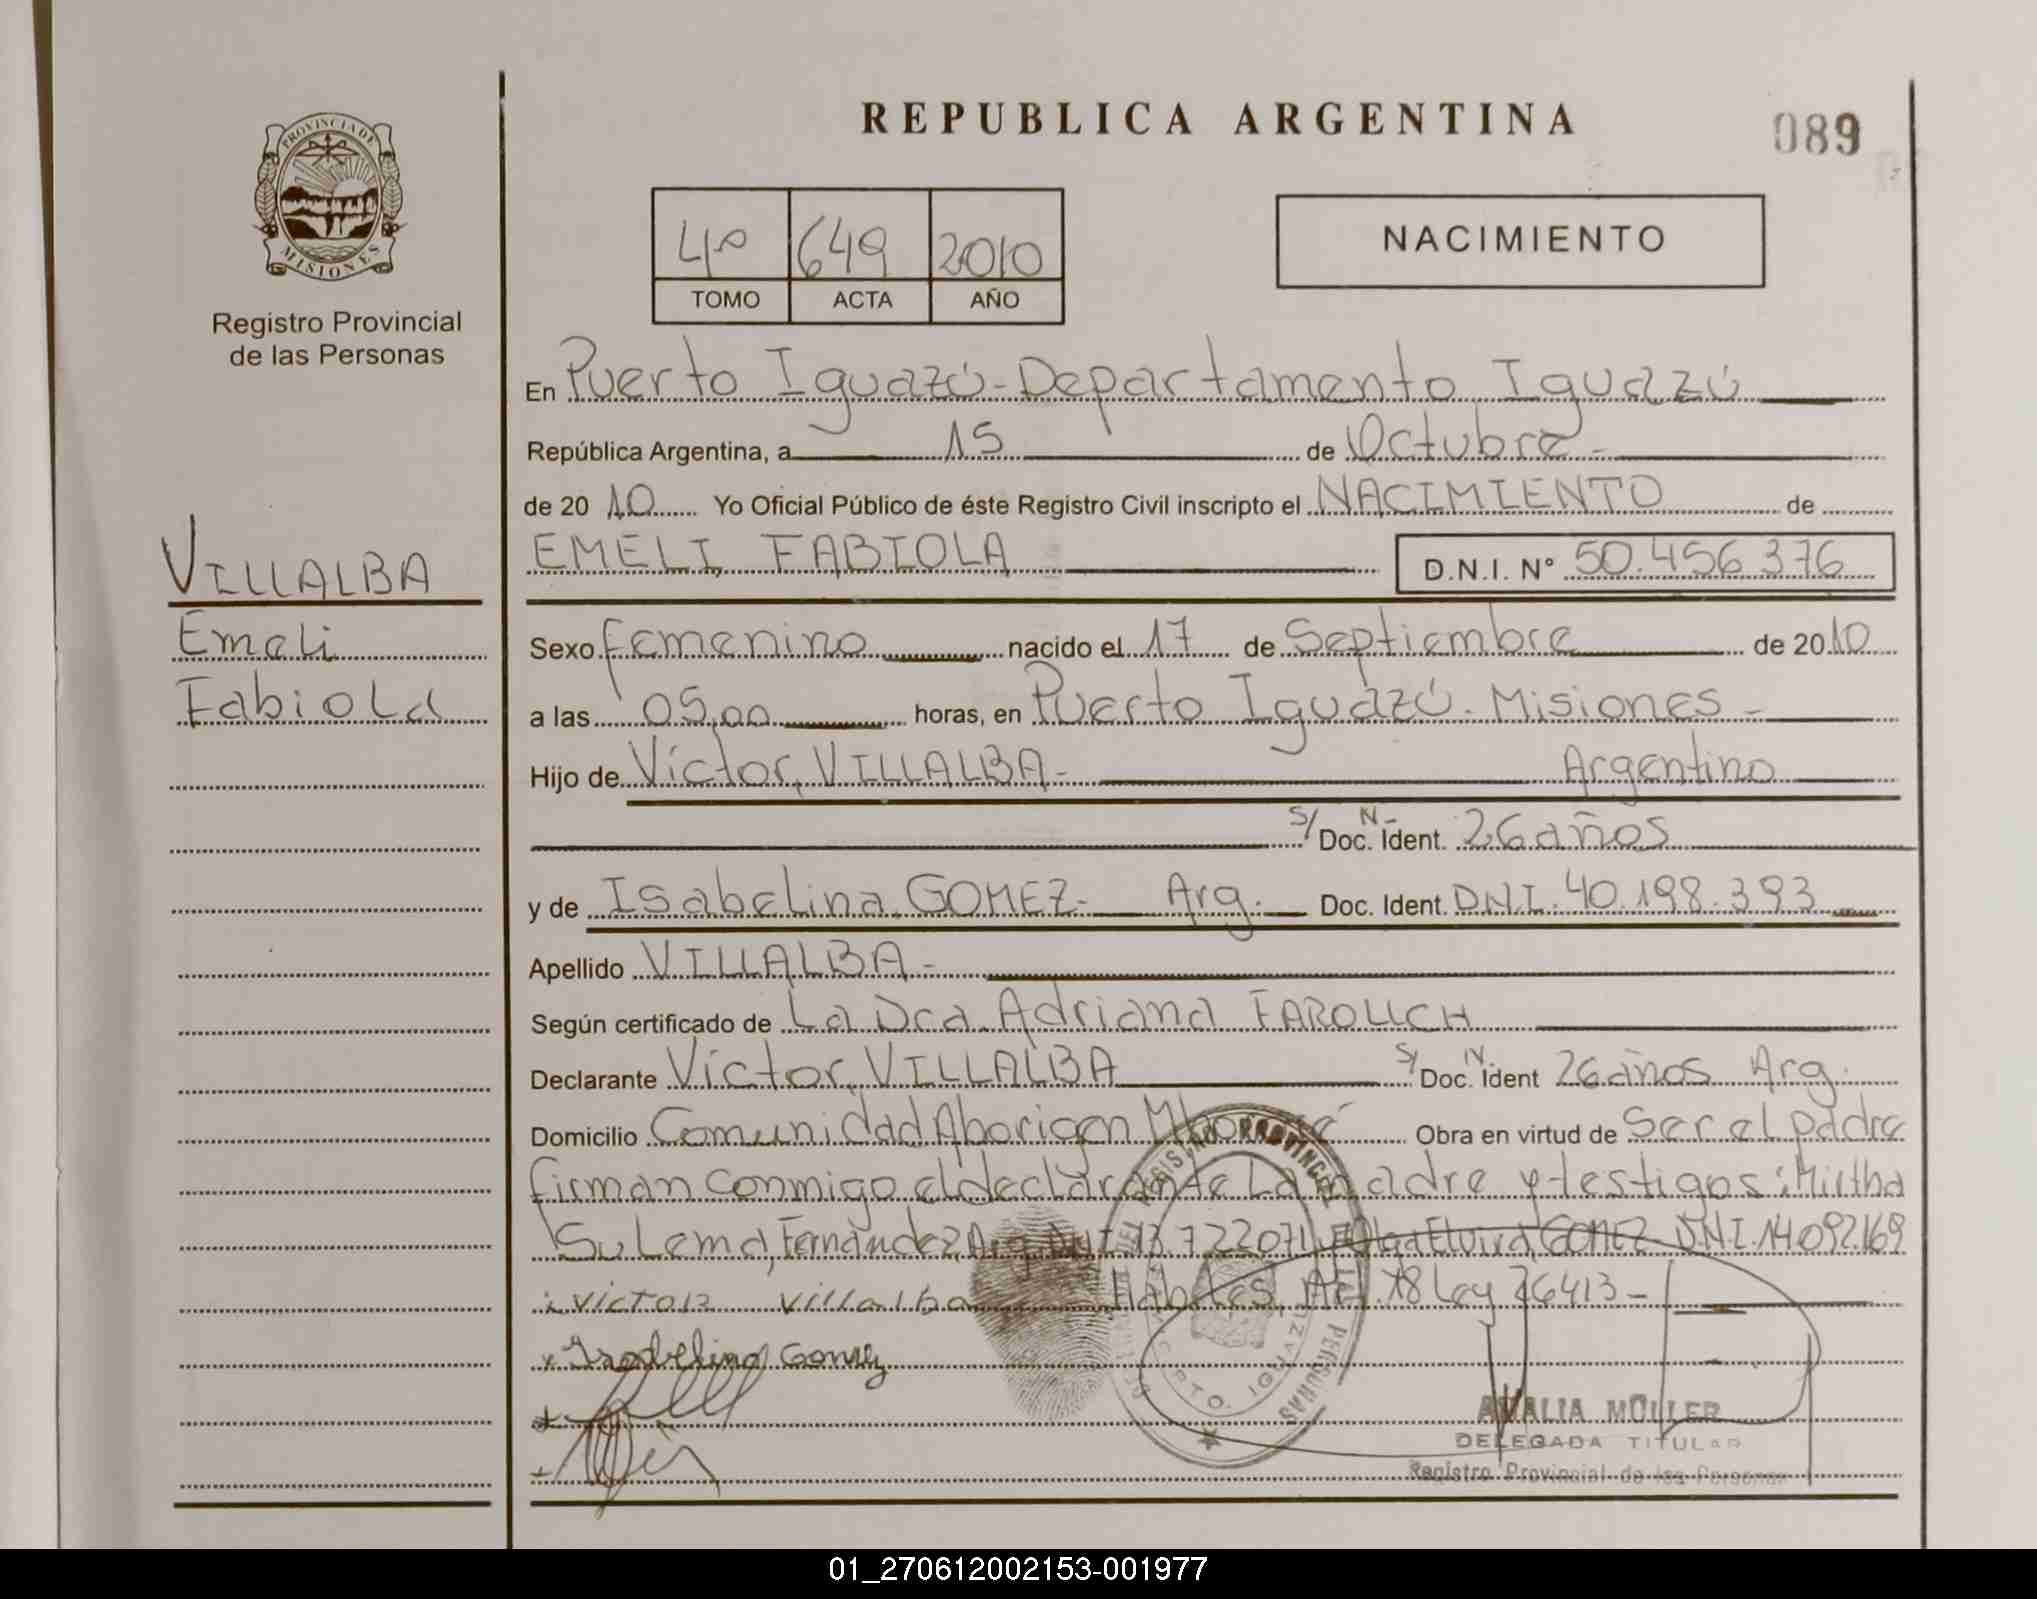 REPUBLICA ARGENTINA
089
PROVINCIA DE
MISIONES
Registro Provincial
de las Personas
4º 649 2010
TOMO ACTA AÑO
NACIMIENTO
En Puerto Iguazú - Departamento Iguazú
República Argentina, a 15 de Octubre -
de 20 10 Yo Oficial Público de éste Registro Civil inscripto el NACIMIENTO de
EMELI FABIOLA D.N.I. Nº 50.456 376
VILLALBA
Emeli
Fabiola
Sexo femenino nacido el 17 de Septiembre de 2010
a las 05,00 horas, en Puerto Iguazú - Misiones -
Hijo de Víctor, VILLALBA - Argentino
S/ Doc. N- Ident. 26 años
y de Isabelina, GOMEZ - Arg. - Doc. Ident. D.N.I. 40.198.393
Apellido VILLALBA -
Según certificado de La Dra. Adriana FAROUCH
Declarante Víctor, VILLALBA S/ Doc. N. Ident 26 años Arg.
Domicilio Comunidad Aborigen Obra en virtud de Ser el padre
firman conmigo el declarante La madre y testigos: Mirtha
Sulema, Fernández, Arg. DNI 13.722071 y Olga Elvira, GOMEZ D.N.I. 14.092.169
x Victor Villalba Hábiles, Art. 78 Ley 26413 -
x Isabelina Gomez
REGISTRO PROVINCIAL DE LAS PERSONAS
DPTO. IGUAZU
AMALIA MÜLLER
DELEGADA TITULAR
Registro Provincial de las Personas
01_270612002153-001977